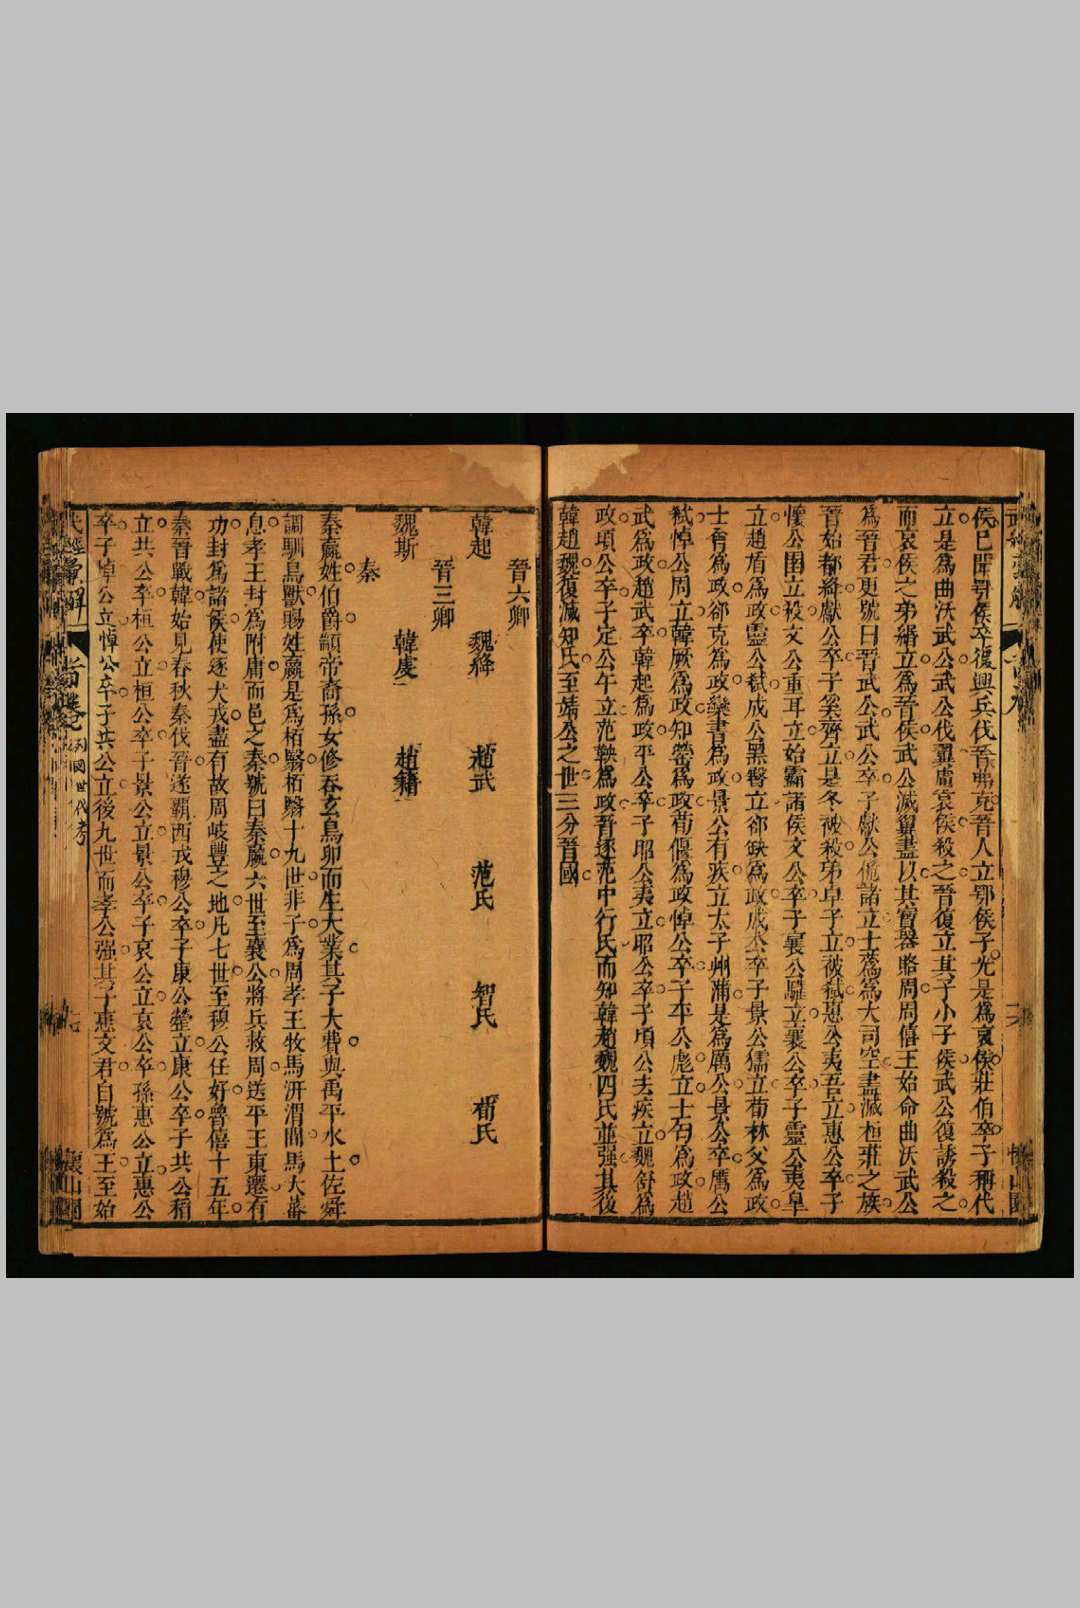 侯已開鄂侯卒復興兵伐晉弗克晉人立鄂侯子光是為哀侯莊伯卒子稱代
立是為曲沃武公武公伐翼虜哀侯殺之晉復立其子小子侯武公復誘殺之
而哀侯之弟緡立為晉侯武公滅翼盡以其寶器賂周周僖王始命曲沃武公
為晉君更號曰晉武公武公卒子獻公佹諸立士蒍為大司空盡滅桓莊之族
晉始都絳獻公卒子奚齊立是冬被殺弟卓子立被弒惠公夷吾立惠公卒子
懷公圉立被殺文公重耳立始霸諸侯文公卒子襄公驩立襄公卒子靈公夷皐
立趙盾為政靈公弒成公黑臀立郤缺為政成公卒子景公獳立荀林父為政
士會為政郤克為政欒書為政景公有疾立太子州滿是為厲公景公卒厲公
弒悼公周立韓厥為政知罃為政荀偃為政悼公卒子平公彪立士匄為政趙
武為政趙武卒韓起為政平公卒子昭公夷立昭公卒子頃公去疾立魏舒為
政頃公卒子定公午立范鞅為政晉逐范中行氏而知韓趙魏四氏並强其後
韓趙魏復滅知氏至靖公之世三分晉國
晉六卿
韓起 魏絳 趙武 范氏 智氏 荀氏
晉三卿
魏斯 韓虔 趙籍
秦
秦嬴姓伯爵顓帝裔孫女修吞玄鳥卵而生大業其子大費與禹平水土佐舜
調馴鳥獸賜姓嬴是為栢翳栢翳十九世非子為周孝王牧馬汧渭間馬大蕃
息孝王封為附庸而邑之秦號曰秦嬴六世至襄公將兵救周送平王東遷有
功封為諸侯使逐犬戎盡有故周岐豐之地凡七世至穆公任好魯僖十五年
秦晉戰韓始見春秋秦伐晉遂霸西戎穆公卒子康公罃立康公卒子共公稻
立共公卒桓公立桓公卒子景公立景公卒子哀公立哀公卒孫惠公立惠公
卒子悼公立悼公卒子共公立後九世而孝公强其子惠文君自號為王至始
五經彙解 首選 列國世代考 懷山園